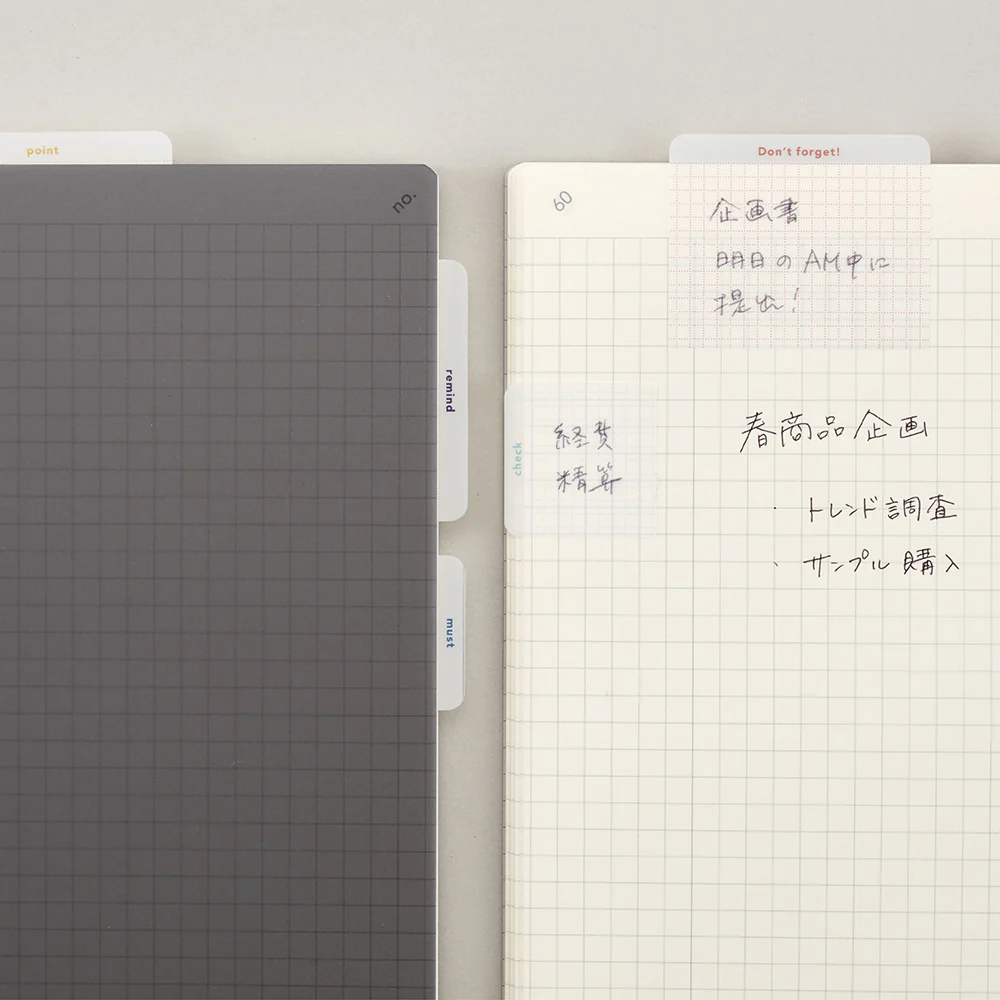 point
no.
remind
must
Don't forget!
60
企画書
明日のAM中に
提出!
check
経費
精算
春商品企画
・トレンド調査
・サンプル購入